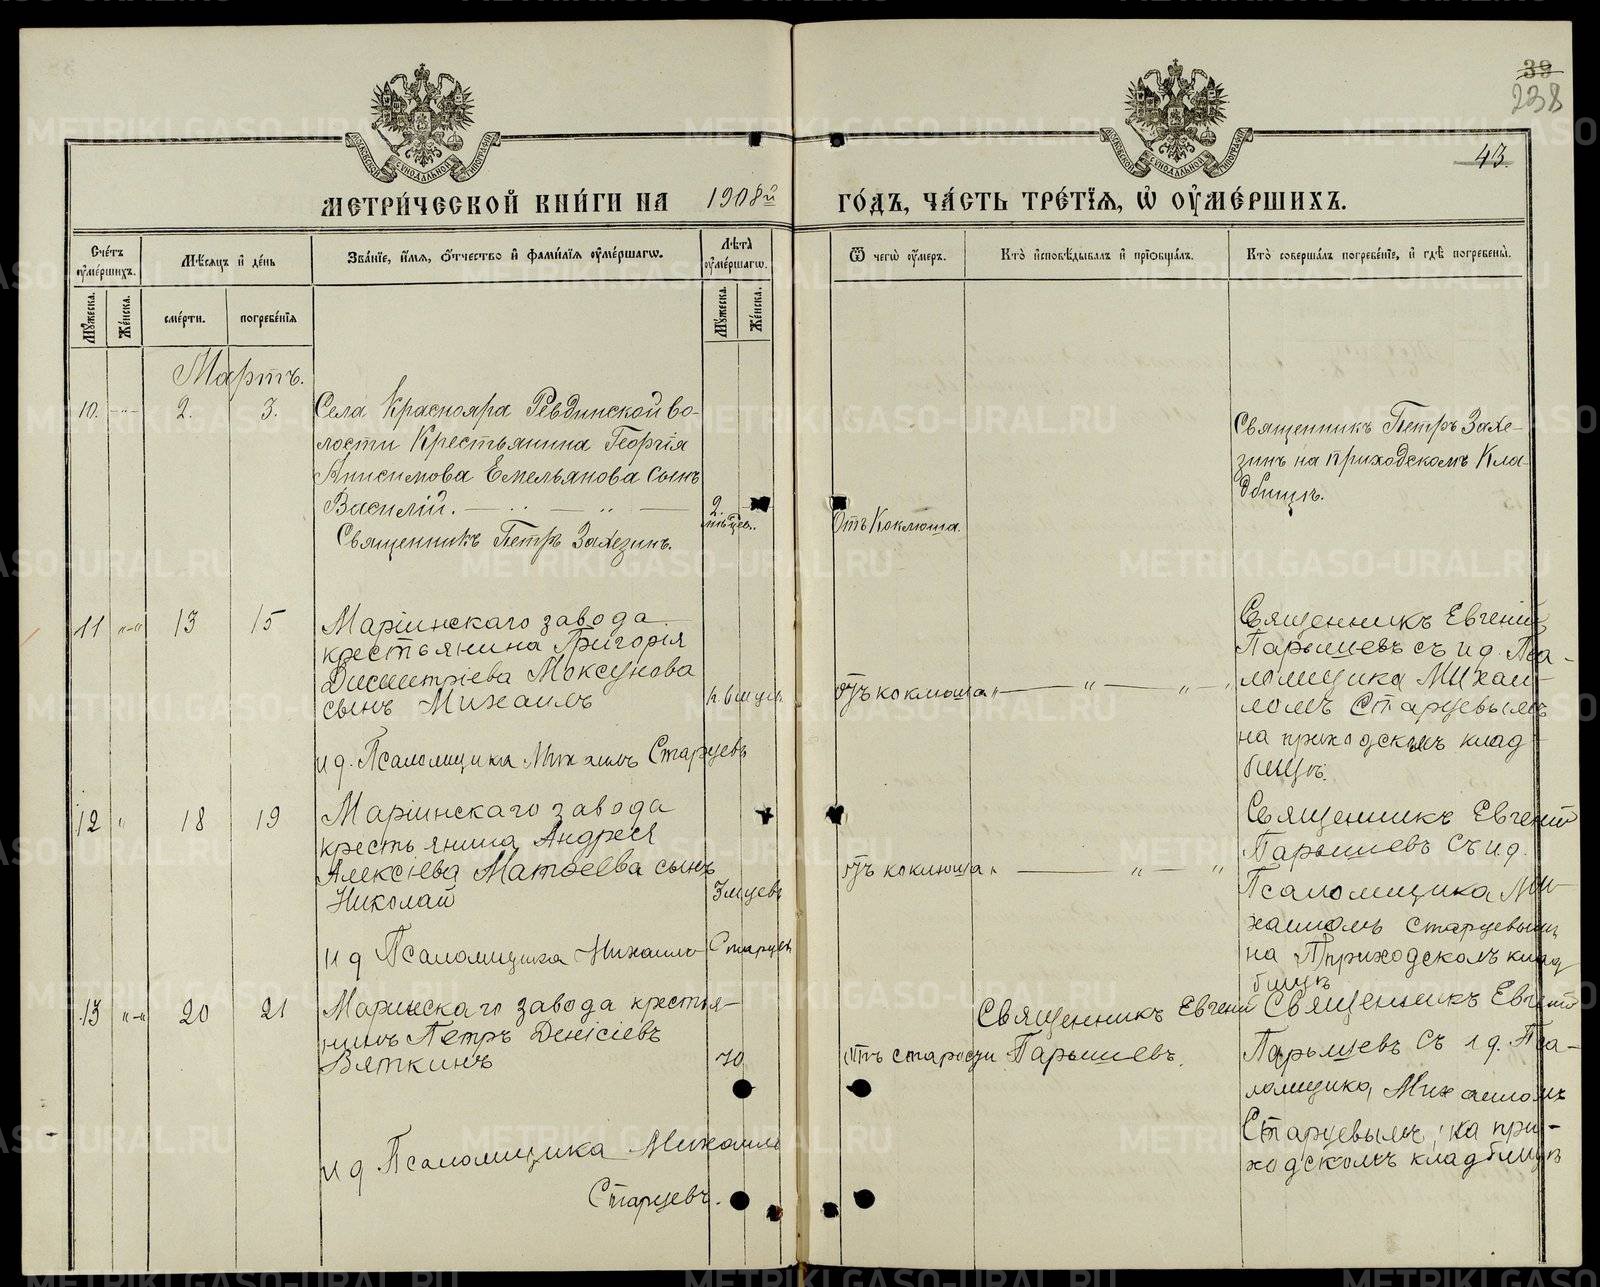 39
238
43
МЕТРИ́ЧЕСКОЙ КНИ́ГИ НА 1908й ГО́ДЪ, ЧА́СТЬ ТРЕ́ТЇЯ, Ѡ ОУМЕ́РШИХЪ.
Сче́тъ оуме́ршихъ.
Мѣ́сяцъ и҆ де́нь
Зва́нїе, и҆́мя, ѻ҆́тчество и҆ фамѝлїя оуме́ршагѡ.
Лѣ́та оуме́ршагѡ.
Ѿ чегѡ̀ оу́меръ.
Кто̀ и҆сповѣ́дывалъ и҆ прїѡбща́лъ.
Кто̀ соверша́лъ погребе́нїе, и҆ гдѣ̀ погребены̀.
Му́жеска.
Же́нска.
сме́рти.
погребе́нїя
Му́жеска.
Же́нска.
Мартъ.
10. 2. 3.
Села Краснояра Ревдинской во-
лости Крестьянина Георгія
Анисимова Емельянова сынъ
Василій.
Священникъ Петръ Захезинъ.
2.
мѣсяц.
Отъ Коклюша.
Священникъ Петръ Захе-
зинъ на приходскомъ Кла-
дбищѣ.
11 „-„ 13 15
Маріинскаго завода
крестьянина Григорія
Димитріева Моксунова
сынъ Михаилъ
и д. Псаломщика Михаилъ Старцевъ
отъ коклюша „ „ „ „
Священникъ Евгеній
Парышевъ съ и д. Пса-
ломщика Михаи-
ломъ Старцевымъ
на приходскомъ клад-
бищѣ.
12 „ 18 19
Маріинскаго завода
крестьянина Андрея
Алексіева Матвеева сынъ
Николай
3 мцевъ
и д Псаломщика Михаилъ Старцевъ
отъ коклюша „ „ „
Священникъ Евгеній
Парышевъ съ и д.
Псаломщика Ми-
хаиломъ Старцевымъ
на Приходскомъ клад
бищѣ
13 „-„ 20 21
Маріинскаго завода крестья-
нинъ Петръ Денісіевъ
Вяткинъ
70
и д Псаломщика Михаилъ
Старцевъ.
отъ старости
Священникъ Евгеній
Парышевъ.
Священникъ Евгеній
Парышевъ съ и д. Пса-
ломщика Михаиломъ
Старцевымъ, на при-
ходскомъ кладбищѣ
METRIKI.GASO-URAL.RU